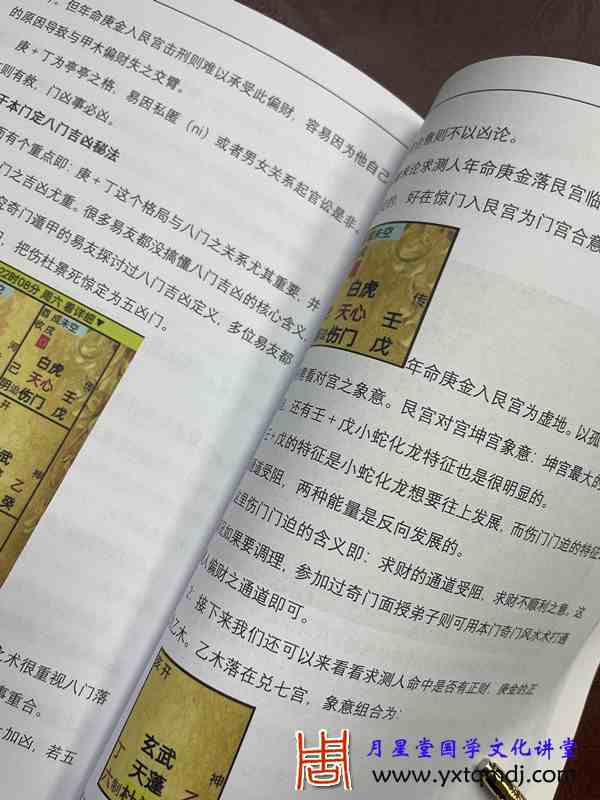 但年命庚金入艮宫击刑则难以承受此偏财，容易因为他自己
的原因导致与甲木偏财失之交臂。
庚＋丁为亭亭之格，易因私匿（ni）或者男女关系起官讼是非。
则有救，门凶事必凶。
于本门定八门吉凶秘法
面有个重点即：庚＋丁这个格局与八门之关系尤其重要，并
门之吉凶尤重。很多易友都没搞懂八门吉凶的核心含义，
奇门遁甲的易友探讨过八门吉凶定义，多位易友都
把伤杜景死惊定为五凶门。
22时08分 周六 看详细▼
戌未空
白虎
己 天心 壬
伤门 戊
开
武
乙
癸
术很重视八门落
事重合。
加凶，若五
意则不以凶论。
论求测人年命庚金落艮宫临
好在惊门入艮宫为门宫合意
戌未空
白虎
传
己 天心 壬
伤门 戊
年命庚金入艮宫为虚地。以孤
看对宫之象意。艮宫对宫坤宫象意：坤宫最大的
还有壬＋戊小蛇化龙特征也是很明显的。
壬+戊的特征是小蛇化龙想要往上发展，而伤门门迫的特征
通道受阻，两种能量是反向发展的。
里伤门门迫的含义即：求财的通道受阻，求财不顺利之意。这
如果要调理，参加过奇门面授弟子则可用本门奇门风水术打通
人偏财之通道即可。
接下来我们还可以来看看求测人命中是否有正财，庚金的正
乙木。乙木落在兑七宫，象意组合为：
开
玄武
坤
丁 天蓬 乙
月星堂国学文化讲堂
www.yxtqmdj.com